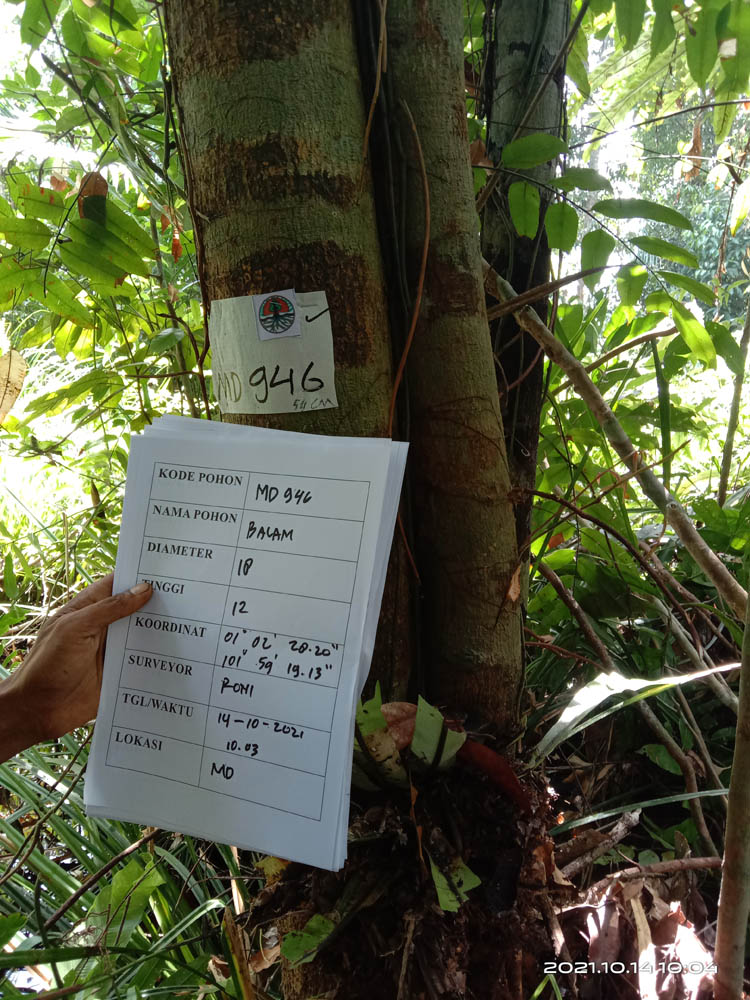 MD 946
54 cm
KODE POHON MD 946
NAMA POHON BALAM
DIAMETER 18
TINGGI 12
KOORDINAT 01° 02' 28.20"
101° 59' 19.13"
SURVEYOR RONI
TGL/WAKTU 14-10-2021
10.03
LOKASI MD
2021.10.14 10:04